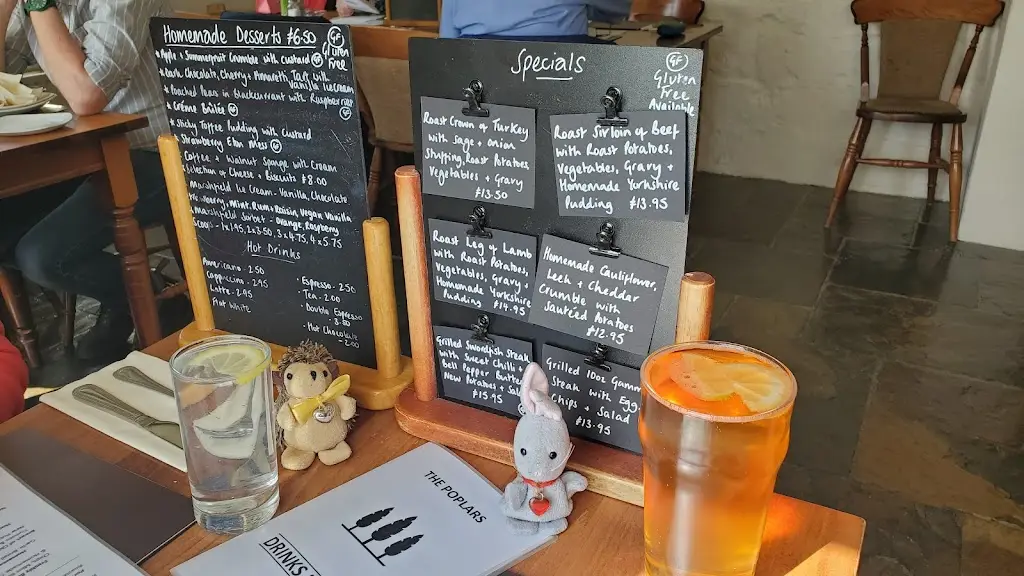 Homemade Desserts £6.50
GF
Gluten
Free
Apple + Summerfruit Crumble with custard GF
Dark Chocolate, Cherry + Amaretti Tart with
Vanilla Icecream
Poached Pears in Blackcurrant with Raspberry
Crème Brûlée GF
Sticky Toffee Pudding with Custard
Strawberry Eton Mess GF
Coffee + Walnut Sponge with Cream
Selection of Cheese + Biscuits £8.00
Marshfield Ice Cream - Vanilla, Chocolate
Honey, Mint, Rum + Raisin, Vegan Vanilla
Marshfield Sorbet - Orange, Raspberry
1.95, 2x3.50 3x4.75, 4x5.75
Hot Drinks
Americano 2.50
Cappuccino 2.95
Latte 2.95
Flat White
Espresso 2.50
Tea 2.00
Double Espresso
Hot Chocolate
Specials
GF
Gluten
Free
Available
Roast Crown of Turkey
with Sage + Onion
Stuffing, Roast Potatoes,
Vegetables + Gravy
£13.50
Roast Sirloin of Beef
with Roast Potatoes,
Vegetables, Gravy +
Homemade Yorkshire
Pudding £13.95
Roast Leg of Lamb
with Roast Potatoes,
Vegetables, Gravy,
Homemade Yorkshire
Pudding £14.95
Homemade Cauliflower,
Leek + Cheddar
Crumble with
Sauteed Potatoes
£12.95
Grilled Swordfish Steak
with Sweet Chilli +
Bell Pepper Butter
New Potatoes +
£15.95
Grilled 10oz Gammon
Steak with Egg,
Chips + Salad
£13.95
THE POPLARS
DRINKS